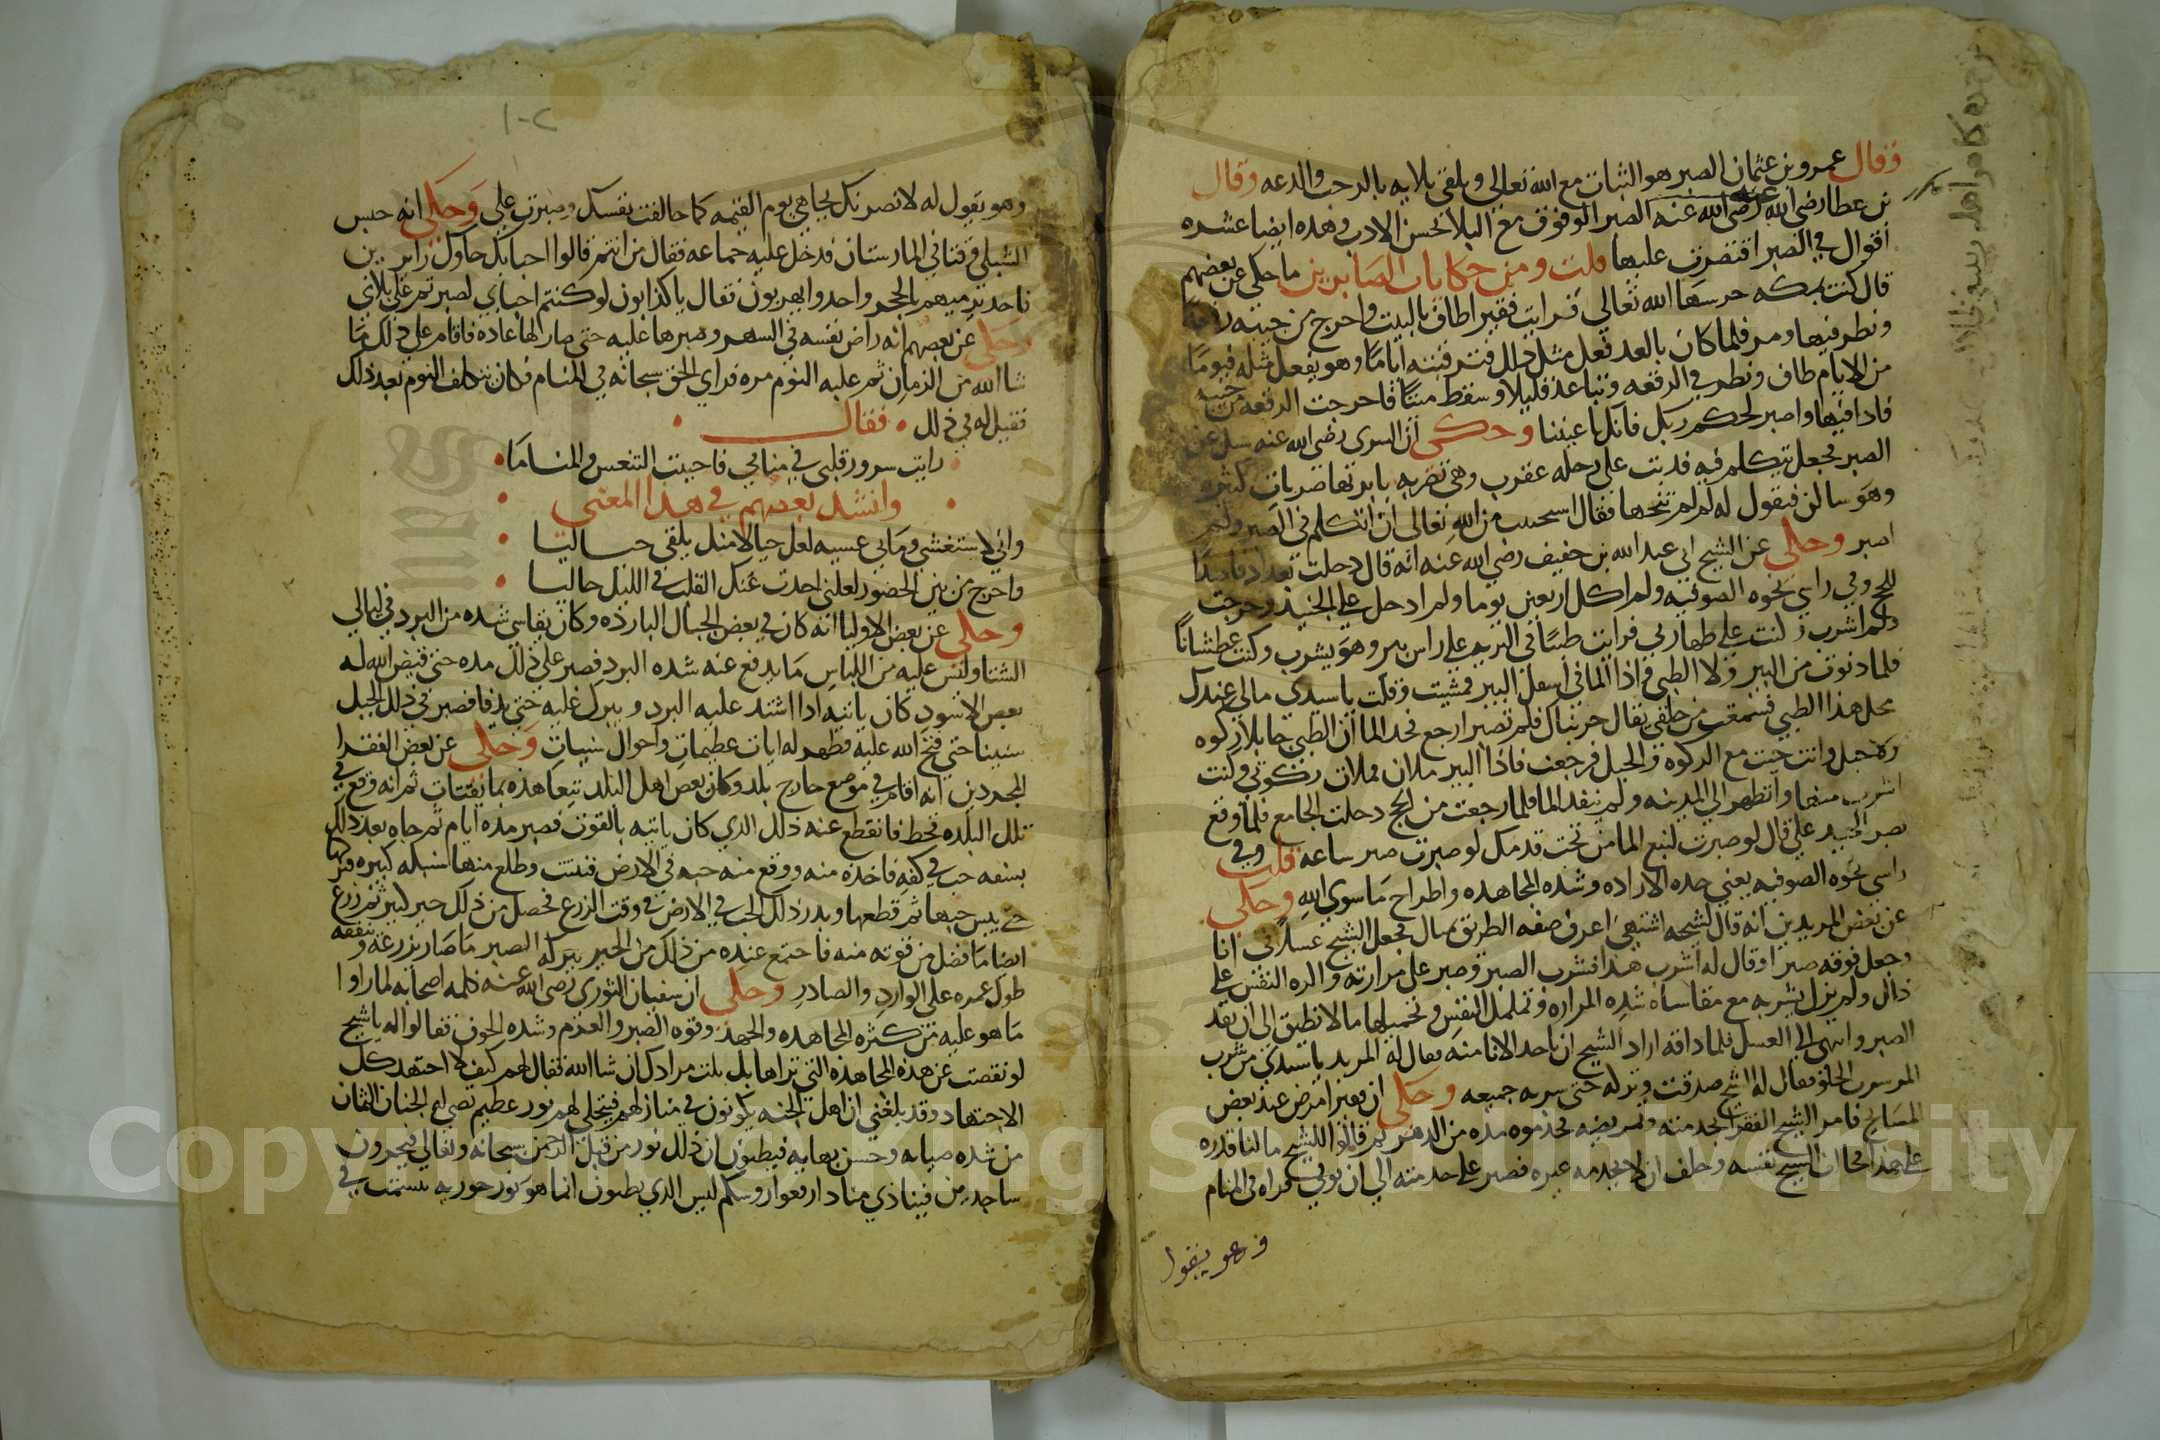 وقال عمرو بن عثمان الصبر هو الثبات مع الله تعالى وتلقى بلايه بالرحب والدعه وقال
بن عطا رضي الله عنه الصبر الوقوف مع البلا بحسن الادب وهذه ايضا عشره
اقوال في الصبر اقتصرت عليها قلت ومن حكايات الصابرين ما حكى عن بعضهم
قال كنت بمكه حرسها الله تعالى فرايت فقيرا طاف بالبيت واخرج من جيبه رقعه
ونظر فيها ومر فلما كان بالغد فعل مثل ذلك فترقبته اياما وهو يفعل مثله فيوما
من الايام طاف ونظر في الرقعه وتباعد قليلا وسقط ميتا فاخرجت الرقعه من جيبه
فاذا فيها واصبر لحكم ربك فانك باعيننا وحكي ان السرى رضي الله عنه سئل عن
الصبر فجعل يتكلم فيه فدبت على رجله عقرب وهي تضربه بابرتها ضربات كثيره
وهو ساكن فقيل له لم لم تنحها فقال استحييت من الله تعالى ان اتكلم في الصبر ولم
اصبر وحكي عن الشيخ ابي عبد الله بن خفيف رضي الله عنه انه قال دخلت بغداد قاصدا
للحج وفي راسي نخوه الصوفيه ولم اكل اربعين يوما ولم ادخل على الجنيد وخرجت
ولم اشرب وكنت على طهارتي فرايت ظبيا في البريه على راس بير وهو يشرب وكنت عطشانا
فلما دنوت من البير ولا الظبي واذا الما في اسفل البير فمشيت وقلت يا سيدي مالي عندك
محل هذا الظبي فسمعت من خلفي يقال جربناك فلم تصبر ارجع فخذ الما ان الظبي جا بلا ركوه
ولا حبل وانت جيت مع الركوه والحبل فرجعت فاذا البير ملان فملات ركوتي وكنت
اشرب منها واتطهر الى المدينه ولم ينفد الما فلما رجعت من الحج دخلت الجامع فلما وقع
بصر الجنيد علي قال لو صبرت لنبع الما من تحت قدمك لو صبرت صبر ساعه قلت وفي
راسي نخوه الصوفيه يعني حده الاراده وشده المجاهده واطراح ما سوى الله وحكي
عن بعض المريدين انه قال لشيخه اشتهي اعرف صفه الطريق فجعل الشيخ عسلا في انا
وجعل فوقه صبرا وقال له اشرب هذا فشرب الصبر وصبر على مرارته واكره النفس على
ذلك ولم يزل يشربه مع مقاساه شده المراره وتململ النفس وتحميلها ما لا تطيق الى ان نفد
الصبر وانتهى الى العسل فلما ذاقه اراد الشيخ ان ياخذ الانا منه فقال له المريد يا سيدي من شرب
المر شرب الحلو فقال له الشيخ صدقت وتركه حتى شربه جميعه وحكي ان فقيرا مرض عند بعض
المشايخ فامر الشيخ الفقرا بخدمته وتمريضه فخدموه مده من الدهر ثم قالوا للشيخ ما لنا قدره
على هذا فجا الشيخ بنفسه وحلف ان لا يخدمه غيره فصبر على خدمته الى ان توفي فراه في المنام
وهو يقول
١٠٢
وهو يقول له لانصرنك بجاهي يوم القيمه كما خالفت نفسك وصبرت علي وحكي انه حبس
الشبلي وقتا في المارستان فدخل عليه جماعه فقال من انتم قالوا احباوك جاوك زايرين
فاخذ يرميهم بالحجر واخذوا يهربون فقال يا كذابون لو كنتم احباي لصبرتم على بلاي
وحكي عن بعضهم انه راض نفسه في السهر وصبرها عليه حتى صار لها عاده فاقام على ذلك ما
شا الله من الزمان ثم غلبه النوم مره فراى الحق سبحانه في المنام فكان يتكلف النوم بعد ذلك
فقيل له في ذلك فقال
رايت سرور قلبي في منامي فاحببت التنعس والمناما
وانشد بعضهم في هذا المعنى
واني لاستغشي وما بي غشيه لعل خيالا منك يلقى خياليا
واخرج من بين الحضور لعلني احدث عنك القلب في الليل خاليا
وحكي عن بعض الاوليا انه كان في بعض الجبال البارده وكان يقاسي شده من البرد في ليالي
الشتا وليس عليه من اللباس ما يدفع عنه شده البرد فصبر على ذلك مده حتى قيض الله له
بعض الاسود كان ياتيه اذا اشتد عليه البرد ويبرك عليه حتى يدفا فصبر في ذلك الجبل
سنينا حتى فتح الله عليه وظهر له ايات عظيمات واحوال سنيات وحكي عن بعض الفقرا
المجردين انه اقام في موضع خارج بلد وكان بعض اهل البلد يتعاهده بما يقتات ثم انه وقع في
تلك البلده قحط فانقطع عنه ذلك الذي كان ياتيه بالقوت فصبر مده ايام ثم جاه بعد ذلك
بسفه حب في كفه فاخذه منه ووقع منه حبه في الارض فنبتت وطلع منها سنبله كبيره فتركها
حتى يبس حبها ثم قطعها وبذر ذلك الحب في الارض في وقت الزرع فحصل من ذلك خير كثير ثم زرع
ايضا ما فضل من قوته منه فاجتمع عنده من ذلك من الخير ببركه الصبر ما صار يزرعه وينفقه
طول عمره على الوارد والصادر وحكي ان سفيان الثورى رضي الله عنه كلمه اصحابه لما راوا
ما هو عليه من كثره المجاهده والجهد وقوه الصبر والعزم وشده الخوف فقالوا له يا شيخ
لو نقصت عن هذه المجاهده التي نراها بك نلت مرادك ان شا الله فقال لهم كيف لا اجتهد كل
الاجتهاد وقد بلغني ان اهل الجنه يكونون في منازلهم فيتجلى لهم نور عظيم تضي له الجنان الثمان
من شده ضيايه وحسن بهايه فيظنون ان ذلك نور من قبل الرحمن سبحانه وتعالى فيخرون
ساجدين فينادي مناد ارفعوا روسكم ليس الذي يظنون انما هو نور حوريه تبسمت في
Copyright © King Saud University